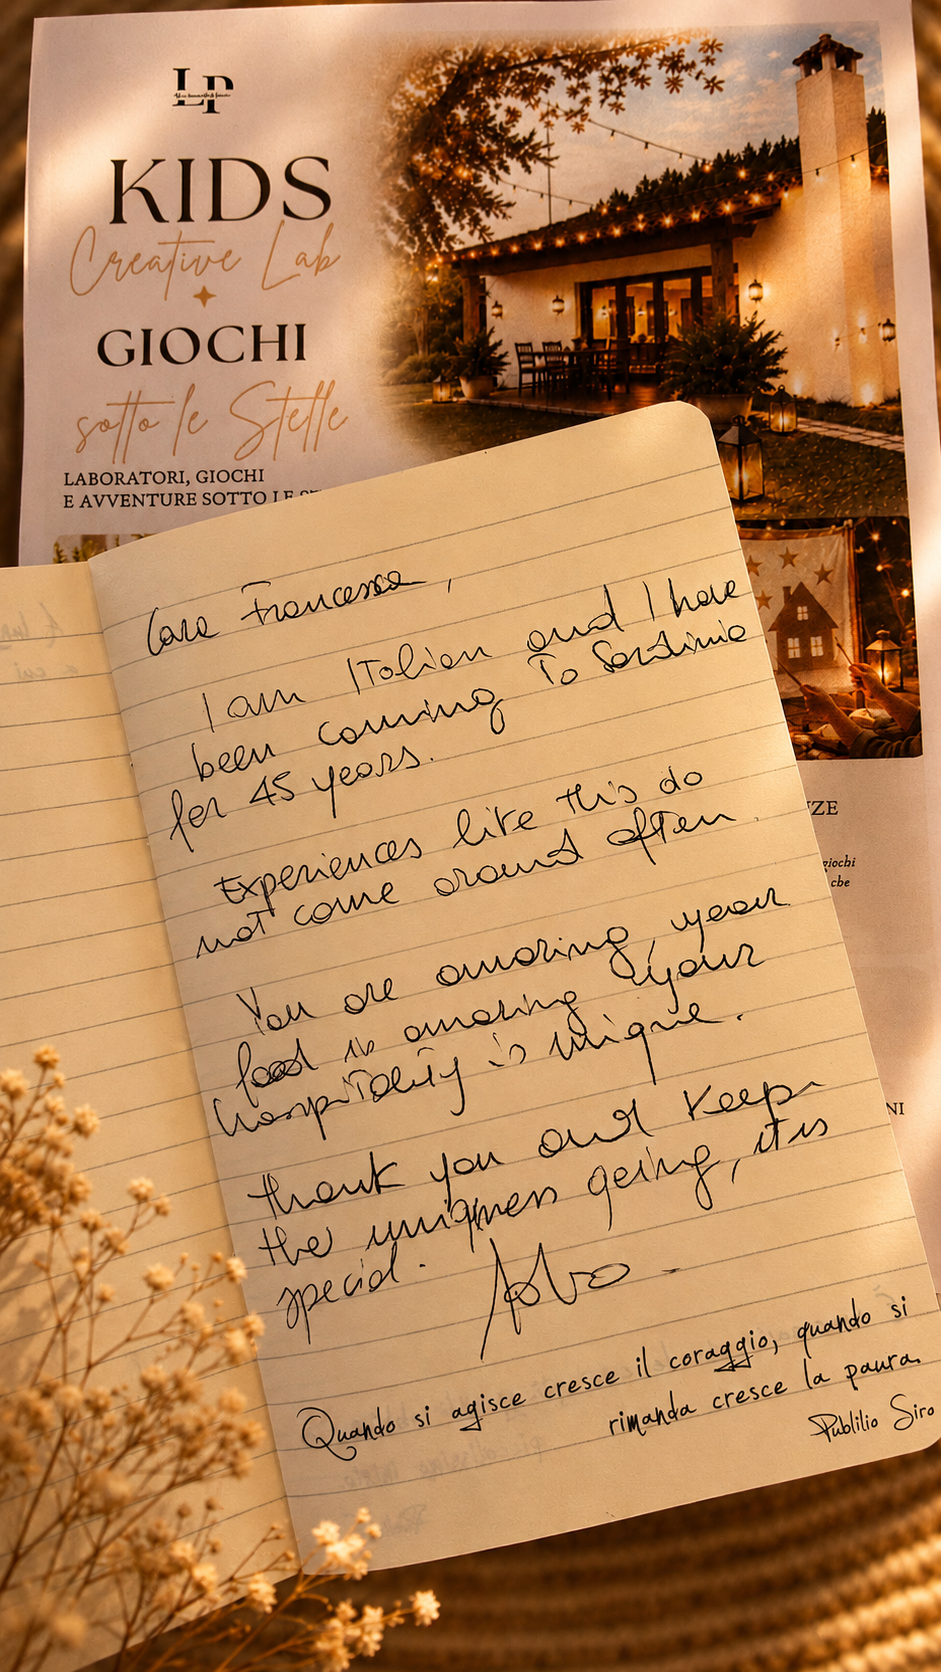 LP
KIDS
Creative Lab
GIOCHI
sotto le Stelle
LABORATORI, GIOCHI
E AVVENTURE SOTTO LE
Cara Francesca,
I am Italian and I have
been coming to Sardinia
for 45 years.
Experiences like this do
not come around often.
You are amazing, your
food is amazing your
hospitality is unique.
thank you and keep
the uniqness going, it is
special.
Quando si agisce cresce il coraggio, quando si
rimanda cresce la paura.
Publilio Siro
giochi
che